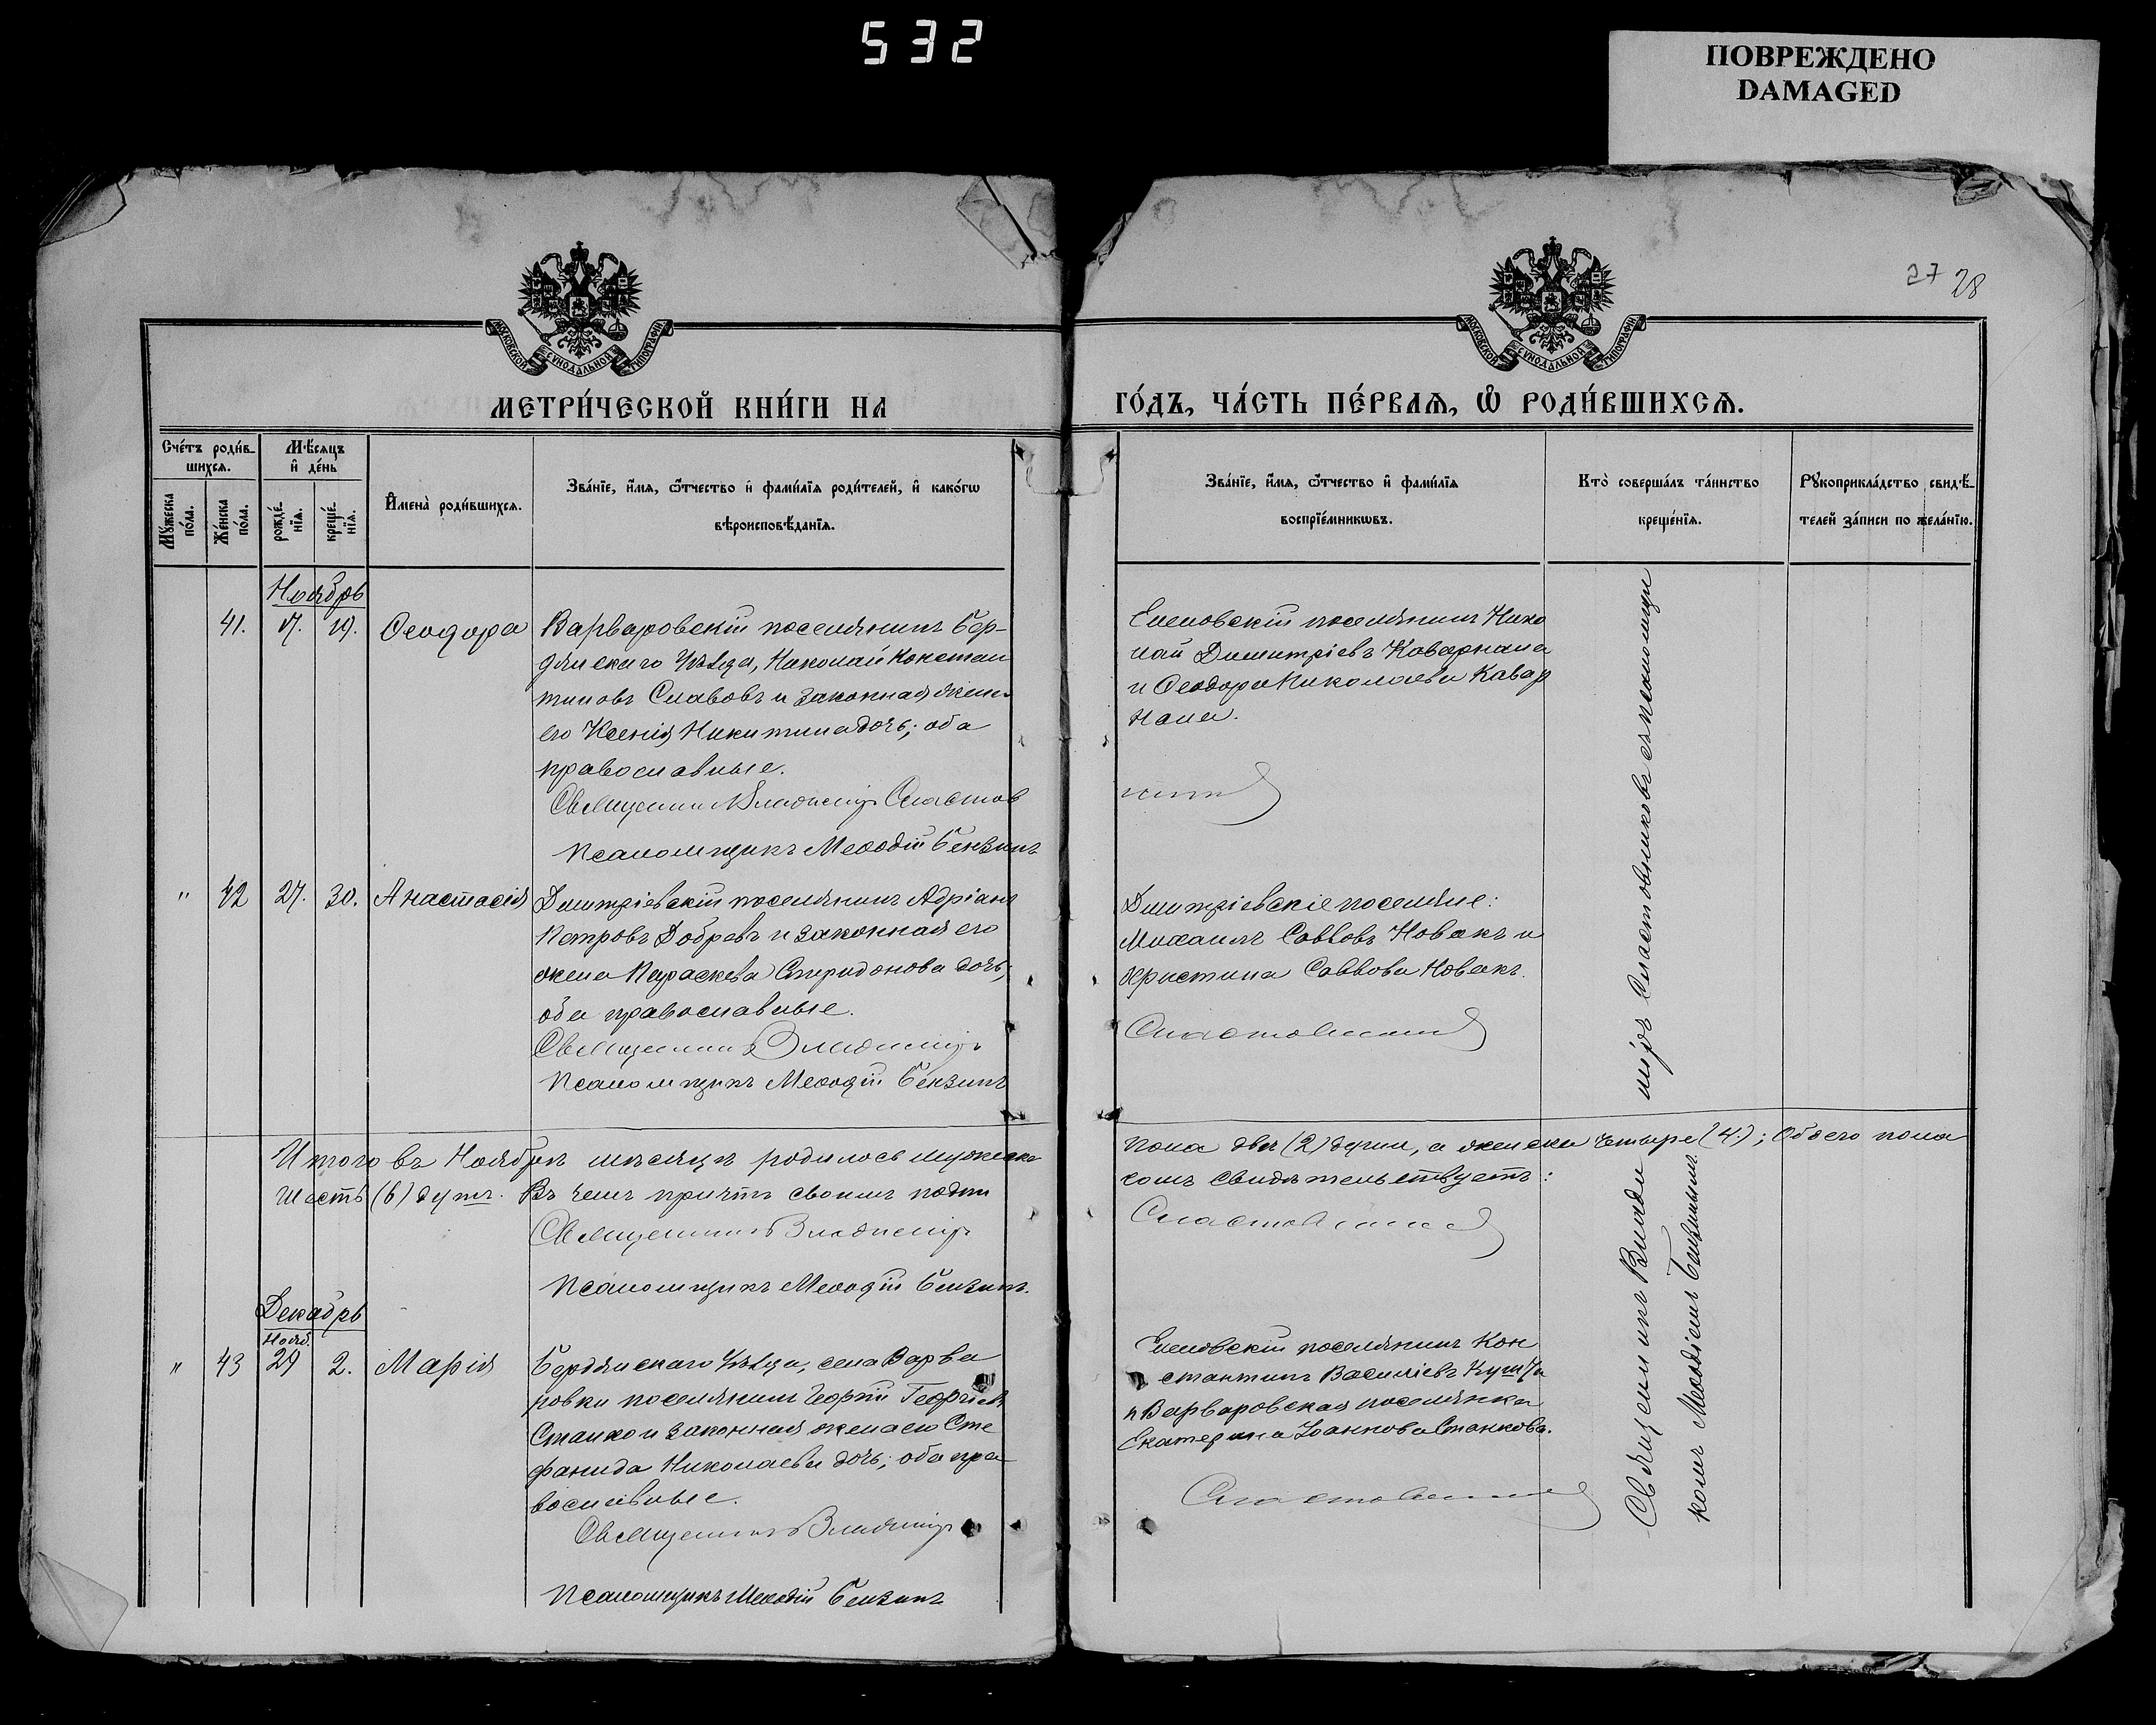 532
ПОВРЕЖДЕНО
DAMAGED
27 28
МОСКОВСКОЙ СѴНОДАЛЬНОЙ ТИПОГРАФІИ
МОСКОВСКОЙ СѴНОДАЛЬНОЙ ТИПОГРАФІИ
МЕТРИ́ЧЕСКОЙ КНИ́ГИ НА
ГО́ДЪ, ЧА́СТЬ ПЕ́РВАЯ, Ѡ РОДИ́ВШИХСЯ.
Сче́тъ роди́в-
шихся.
Мѣ́сяцъ
и҆ де́нь
Мꙋжеска
по́ла.
Же́нска
по́ла.
рожде́-
нїя.
креще́-
нїя.
И҆мена̀ роди́вшихся.
Зва́нїе, и҆́мя, ѻ҆́тчество и҆ фами́лїя роди́телей, и҆ како́гѡ
вѣроисповѣ́данїя.
Зва́нїе, и҆́мя, ѻ҆́тчество и҆ фами́лїя
воспрїе́мникѡвъ.
Кто̀ соверша́лъ та́инство
креще́нїя.
Рꙋкоприкла́дство свидѣ́-
телей за́писи по жела́нїю.
Ноябрь
41. 17. 19. Ѳеодора
Варваровскій поселянинъ Бер-
дянскаго Уѣзда, Николай Констан
тиновъ Славовъ и законная жена
его Ксенія Никитина дочь; оба
православные.
Священникъ Владиміръ Сластов
Псаломщикъ Меѳодій Бензинъ
Еленовскій поселянинъ Нико
лай Димитріевъ Каварнали
и Ѳеодора Николаева Кавар
нали.
" 42 27. 30. Анастасія
Димитріевскій поселянинъ Адріанъ
Петровъ Добревъ и законная его
жена Параскева Спиридонова дочь;
оба православные.
Священникъ Владиміръ
Псаломщикъ Меѳодій Бензинъ
Димитріевскіе поселяне:
Михаилъ Саввовъ Новакъ и
Христина Саввова Новакъ.
Сластовников
Итого въ Ноябрѣ мѣсяцѣ родилось мужеска
пола двѣ (2) души, а женска четыре (4.); Обоего пола
шесть (6) душъ. Въ чемъ причтъ своимъ подпи
сомъ свидѣтельствуетъ:
Священникъ Владиміръ
Сластовников
Псаломщикъ Меѳодій Бензинъ.
Декабрь
Нояб.
" 43 29 2. Марія
Бердянскаго Уѣзда, села Варва
ровки поселянинъ Георгій Георгіевъ
Станко и законная жена его Сте
фанида Николаева дочь; оба пра
вославные.
Священникъ Владиміръ
Псаломщикъ Меѳодій Бензинъ
Еленовскій поселянинъ Кон
стантинъ Василіевъ
и Варваровская поселянка
Екатерина Іоаннова Станкова.
Сластовников
Священникъ Влади
міръ Сластовниковъ съ псаломщи
комъ Меѳодіемъ Бензинымъ.